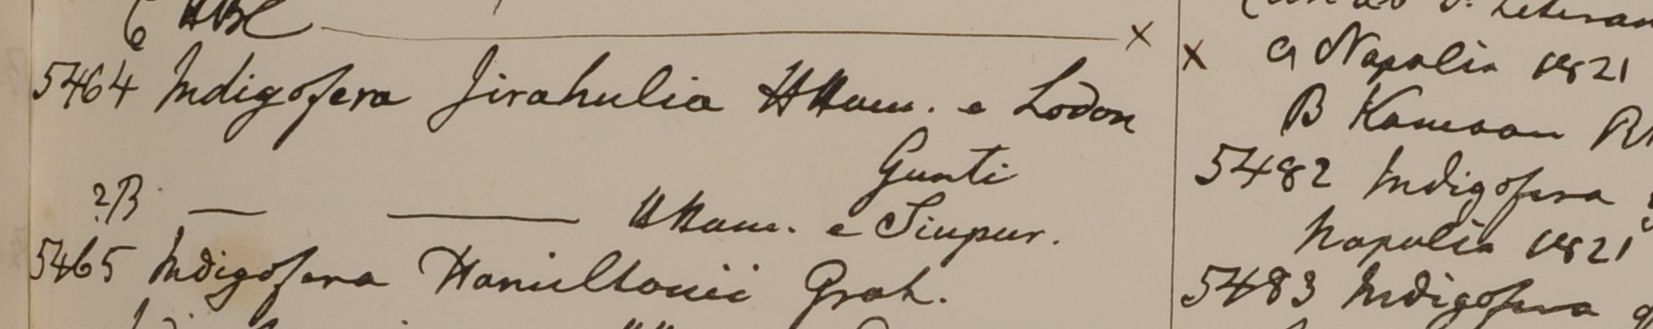 6 HBC
5464 Indigofera Jirahulia HHam. e Lodon
Gunti
?B — — HHam. e Siupur.
5465 Indigofera Hamiltonii Grah.
x a Napalia 1821
B Kamaon
5482 Indigofera
Napalia 1821
5483 Indigofera